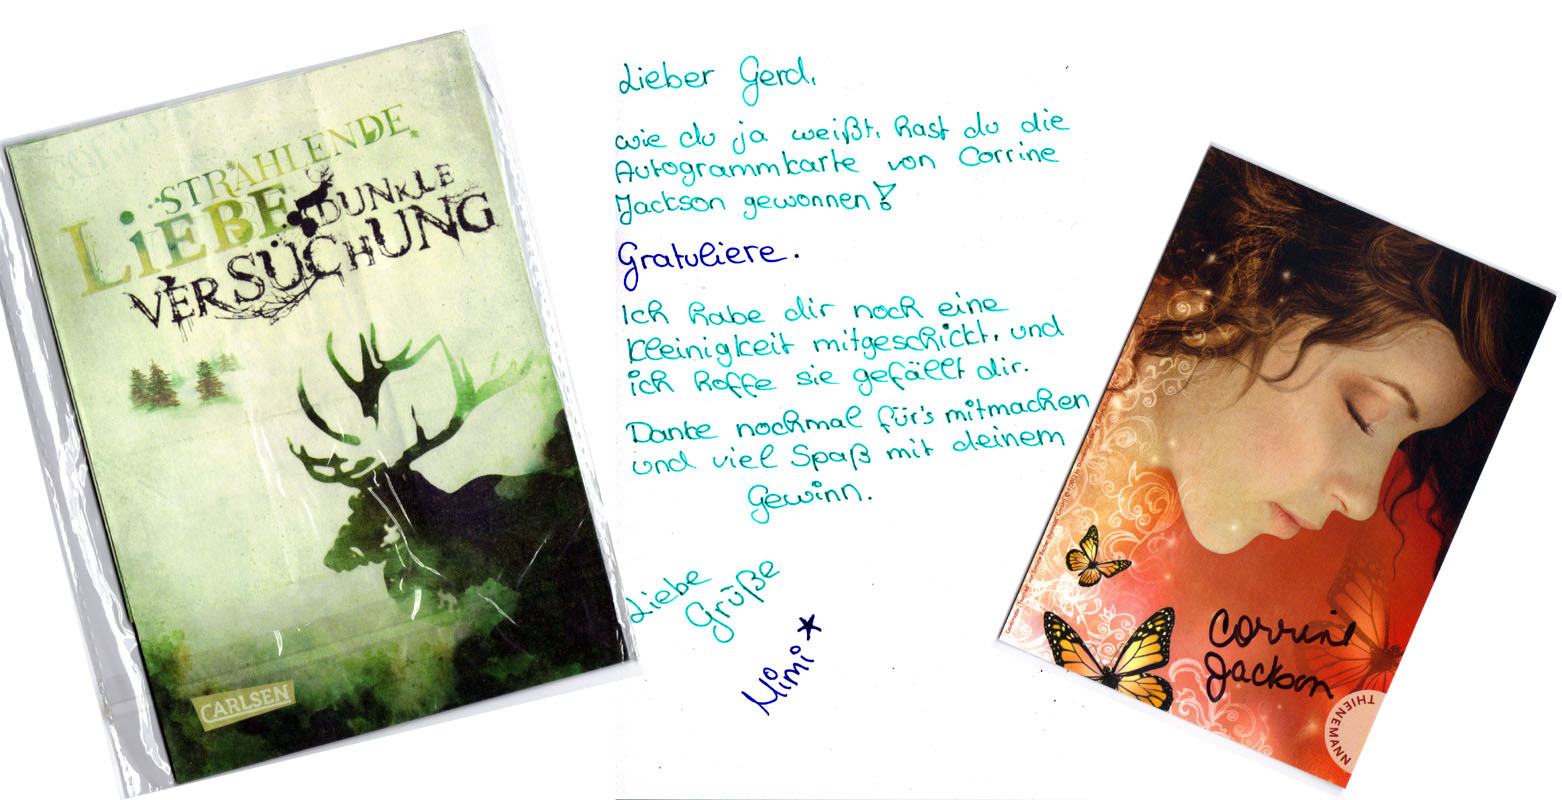 STRAHLENDE
LiEBE DUNKLE
VERSUCHUNG
CARLSEN
Lieber Gerd,
wie du ja weißt, hast du die
Autogrammkarte von Corrine
Jackson gewonnen!
Gratuliere.
Ich habe dir noch eine
Kleinigkeit mitgeschickt, und
ich hoffe sie gefällt dir.
Danke nochmal für's mitmachen
und viel Spaß mit deinem
Gewinn.
Liebe
Grüße
Mimi
Corrine
Jackson
THIENEMANN